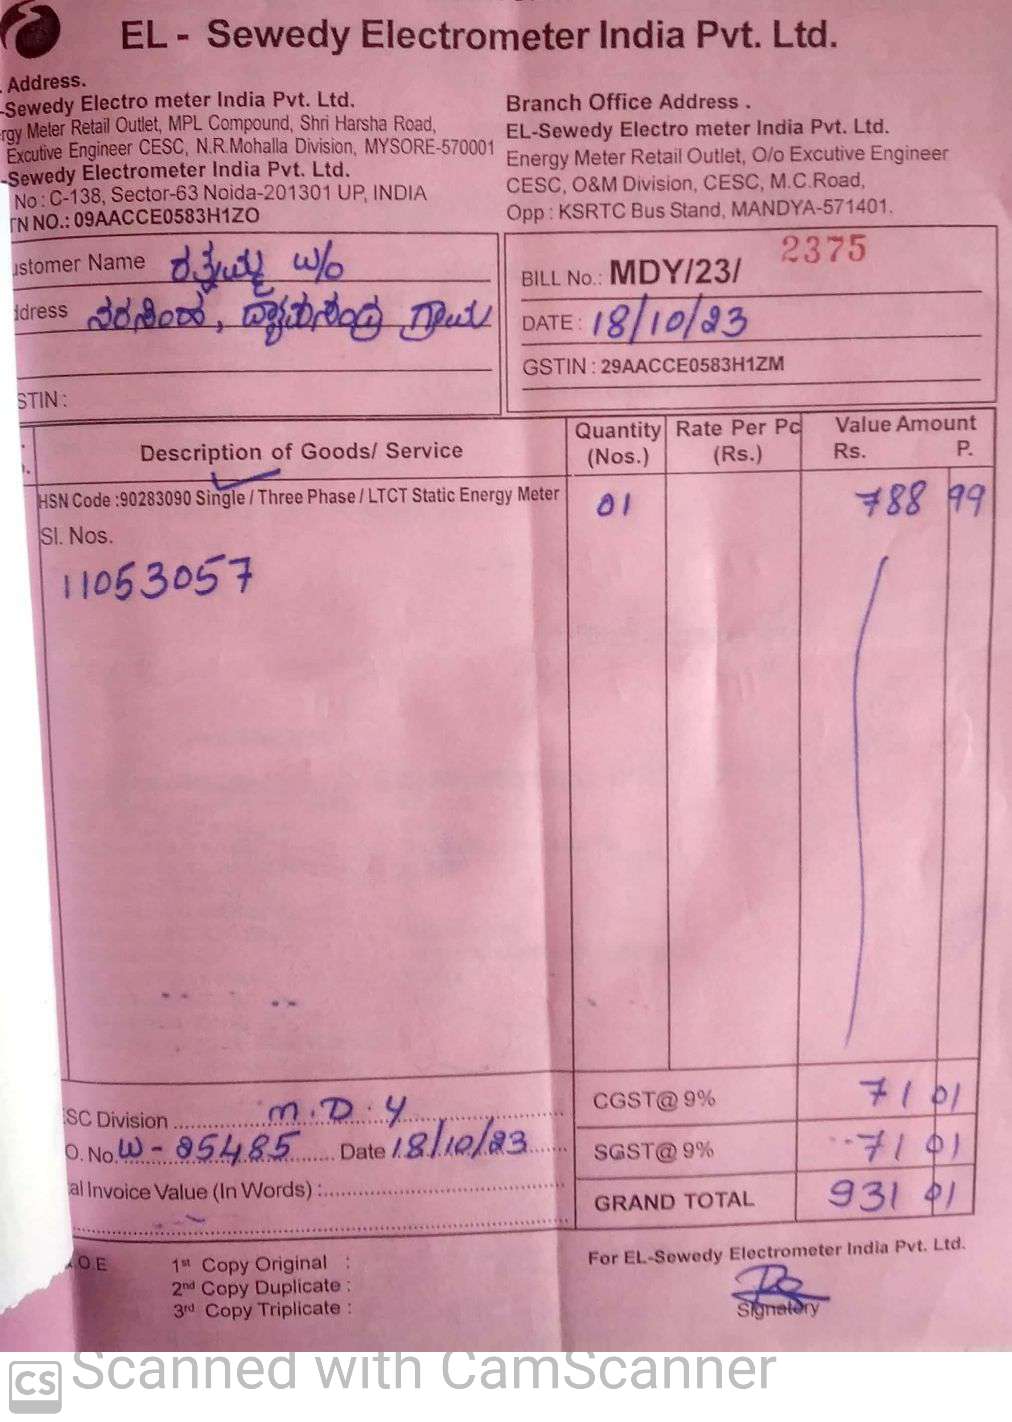 EL - Sewedy Electrometer India Pvt. Ltd.
Address.
-Sewedy Electro meter India Pvt. Ltd.
rgy Meter Retail Outlet, MPL Compound, Shri Harsha Road,
Excutive Engineer CESC, N.R.Mohalla Division, MYSORE-570001
-Sewedy Electrometer India Pvt. Ltd.
No : C-138, Sector-63 Noida-201301 UP, INDIA
TN NO.: 09AACCE0583H1ZO
Branch Office Address .
EL-Sewedy Electro meter India Pvt. Ltd.
Energy Meter Retail Outlet, O/o Excutive Engineer
CESC, O&M Division, CESC, M.C.Road,
Opp : KSRTC Bus Stand, MANDYA-571401.
ustomer Name w/o
ddress ಗ್ರಾಮ
STIN :
2375
BILL No.: MDY/23/
DATE : 18/10/23
GSTIN : 29AACCE0583H1ZM
Description of Goods/ Service Quantity (Nos.) Rate Per Pc (Rs.) Value Amount Rs. P.
HSN Code :90283090 Single / Three Phase / LTCT Static Energy Meter 01 788 99
Sl. Nos.
11053057
SC Division M.D.Y CGST@ 9% 71 01
O. No. W-25485 Date 18/10/23 SGST@ 9% 71 01
al Invoice Value (In Words) : GRAND TOTAL 931 01
.O.E 1st Copy Original :
2nd Copy Duplicate :
3rd Copy Triplicate :
For EL-Sewedy Electrometer India Pvt. Ltd.
Signatory
CS Scanned with CamScanner